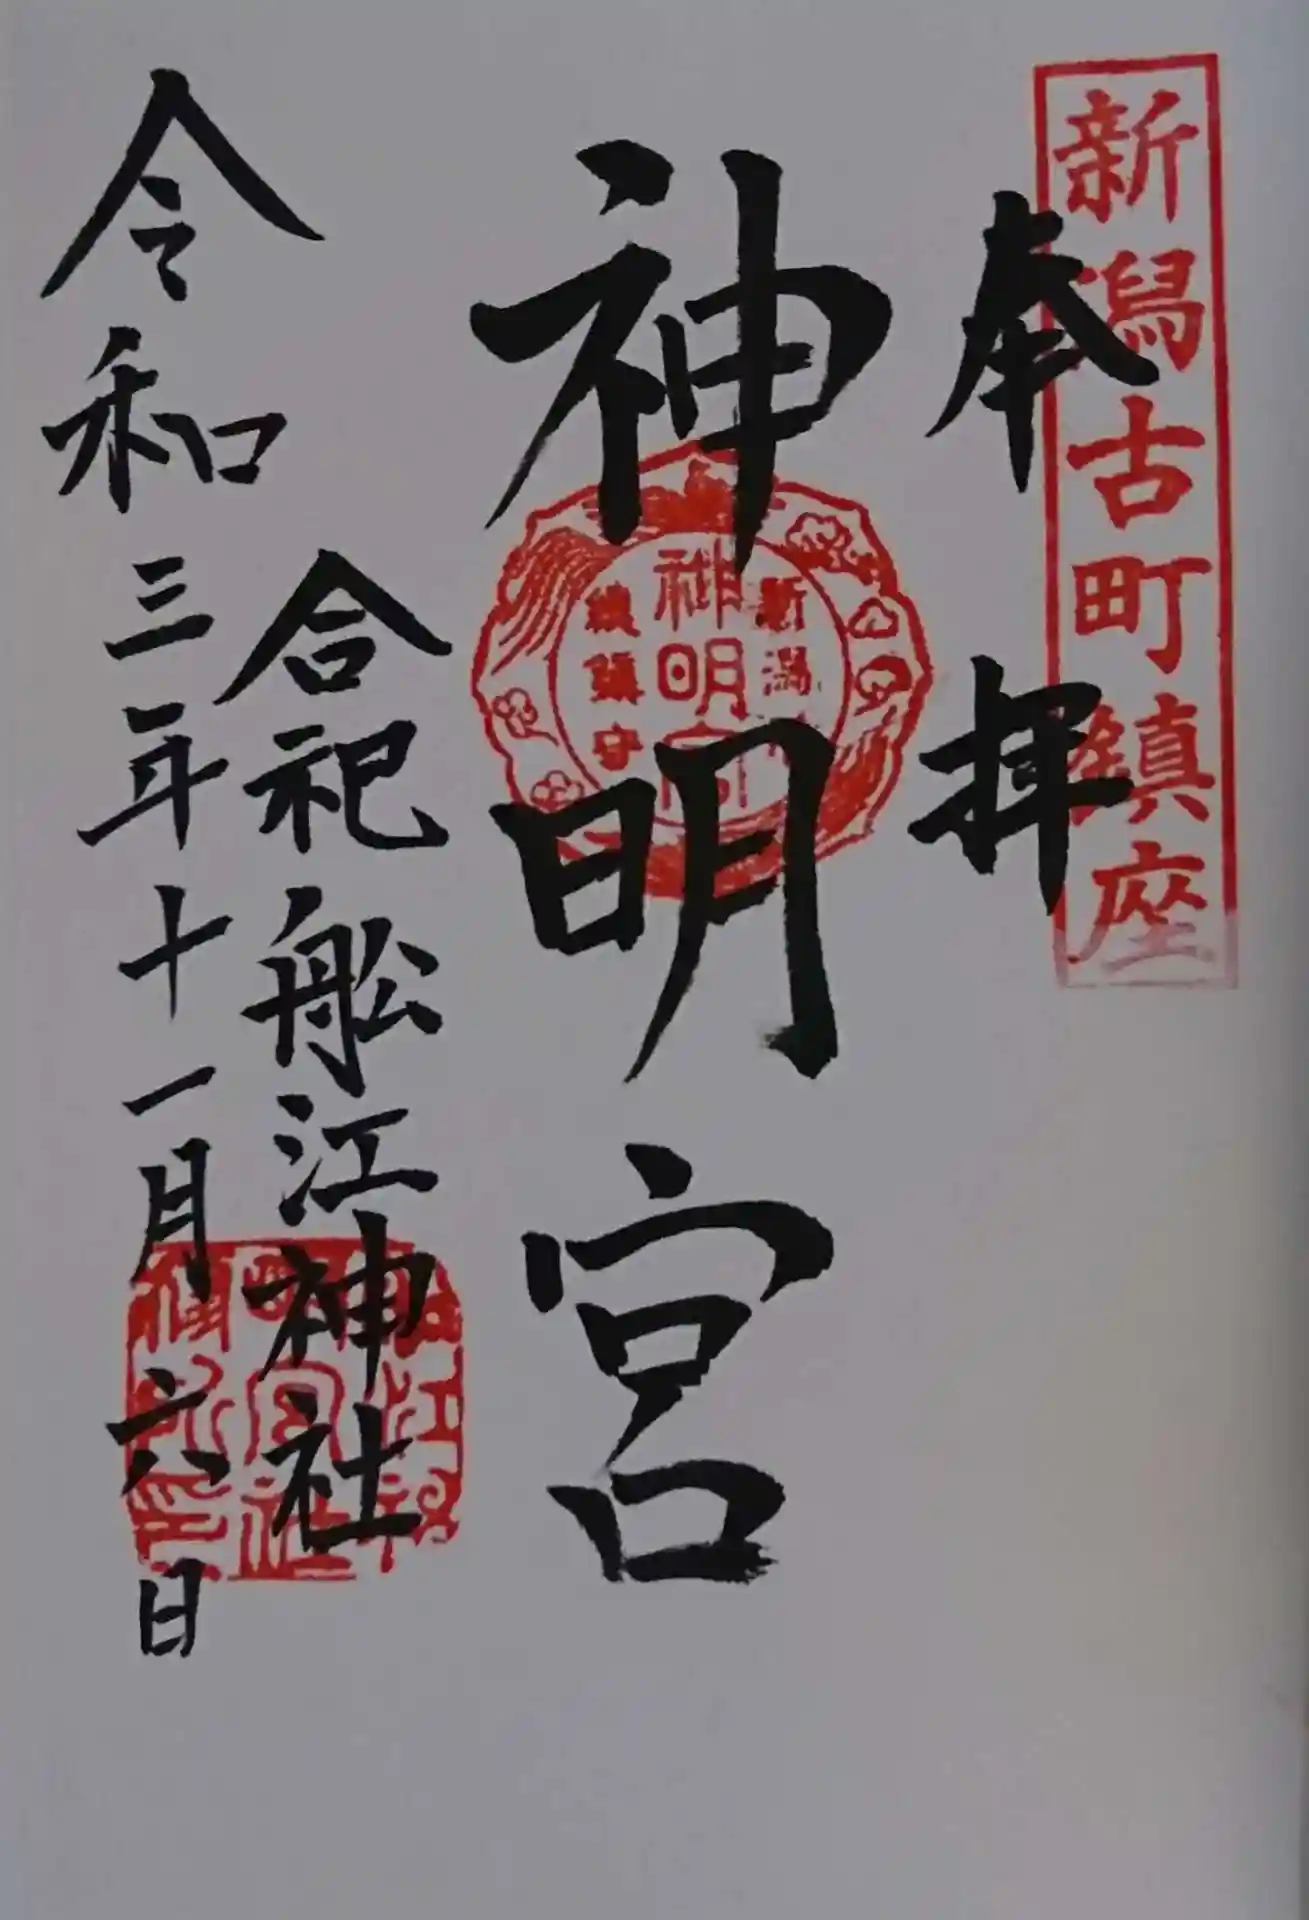 新潟古町鎮座
奉拝
神明宮
新潟
神明宮
総鎮守
合祀舩江神社
令和三年十一月六日